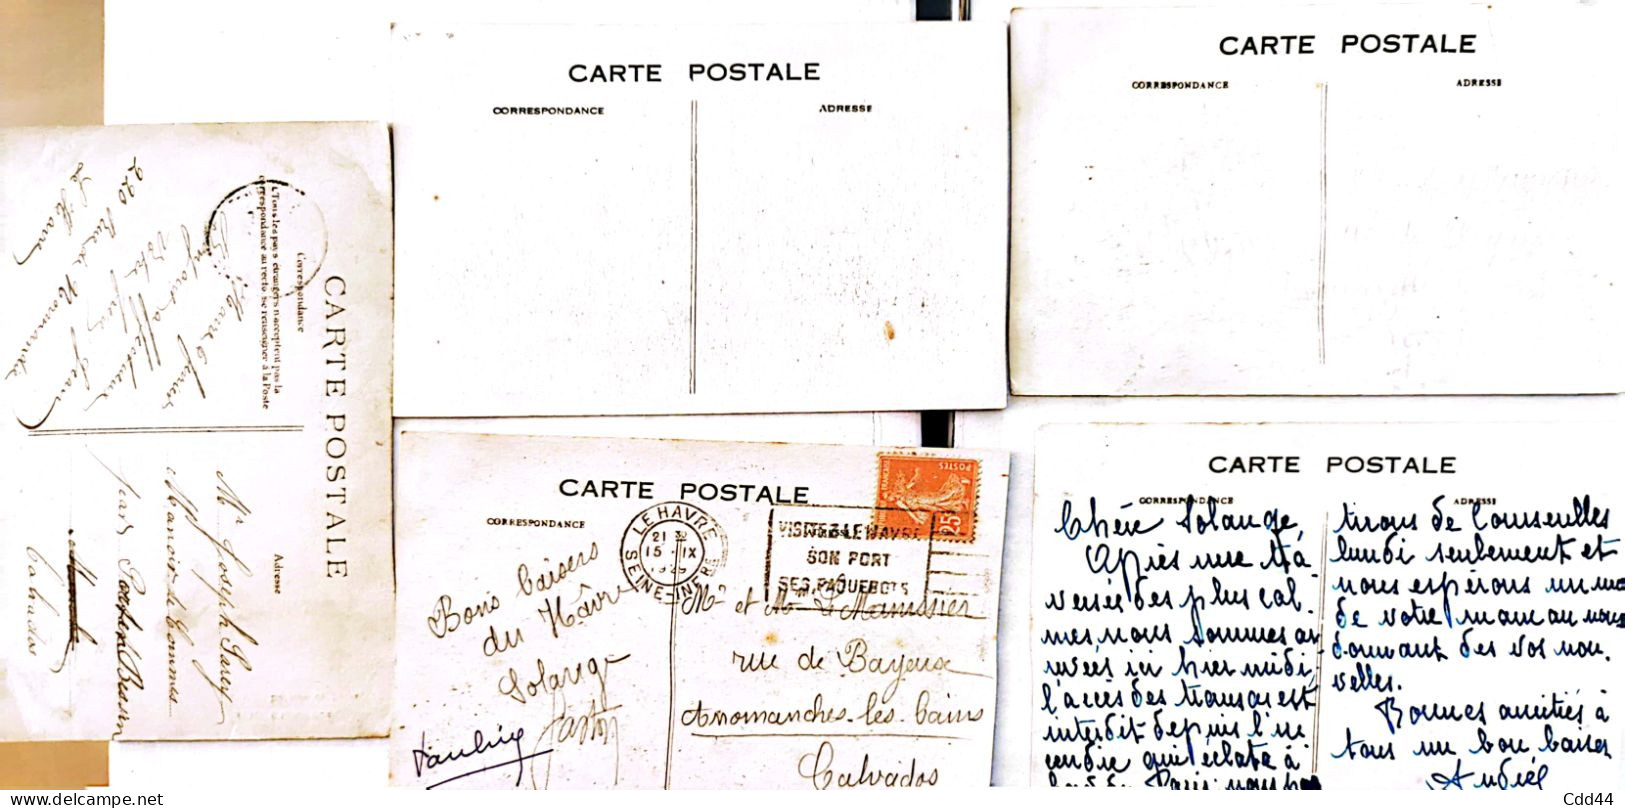 CARTE POSTALE
Correspondance
Adresse
(Tous les pays étrangers n'acceptent pas la
correspondance au recto se renseigner à la Poste
Votre
220 Rue de Normandie
Le Havre
Mr Joseph
Manoir de Commes
par Port en Bessin
Calvados
CARTE POSTALE
CORRESPONDANCE
ADRESSE
CARTE POSTALE
CORRESPONDANCE
ADRESSE
CARTE POSTALE
CORRESPONDANCE
LE HAVRE
21
15 - IX
1929
SEINE-INFRE
VISITEZ LE HAVRE
SON PORT
SES PAQUEBOTS
POSTES
25
Bons baisers
du Hâvre
Solange
Gaston
Mr et Mme
rue de Bayeux
Arromanches-les-bains
Calvados
CARTE POSTALE
CORRESPONDANCE
ADRESSE
Chère Solange,
Après une tra
versée des plus cal-
mes nous sommes ar
rivées ici hier midi,
l'accès des transats est
interdit depuis l'in
cendie qui éclata à
bord du Paris nous
tirons de Courseulles
lundi seulement et
nous espérons un mo
de votre maman nous
donnant des vos nou.
velles.
Bonnes amitiés à
tous un bon baiser
Cdd44